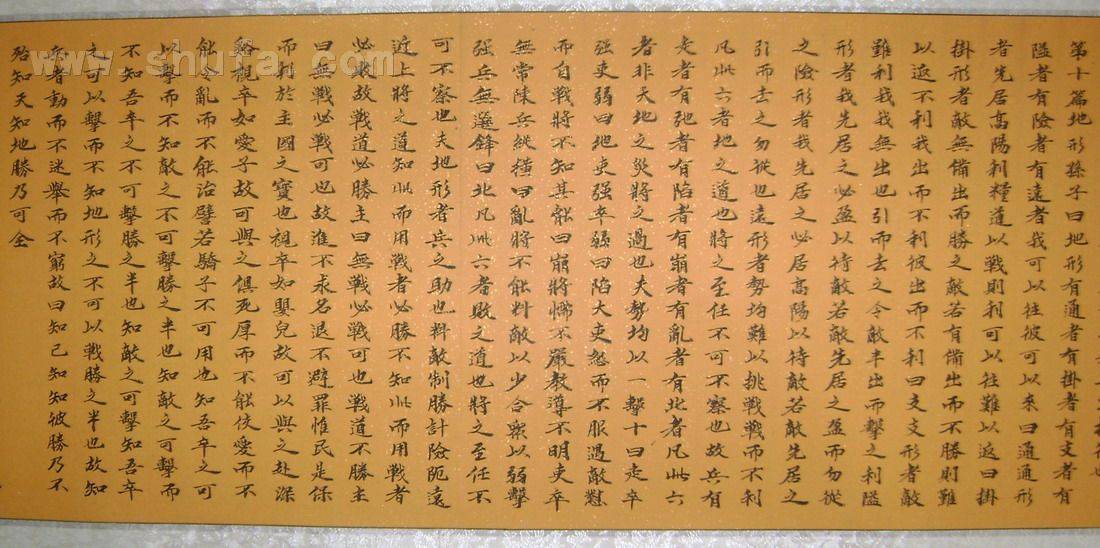 第十篇地形孫子曰地形有通者有掛者有支者有
隘者有險者有遠者我可以往彼可以來曰通通形
者先居高陽利糧道以戰則利可以往難以返曰掛
掛形者敵無備出而勝之敵若有備出而不勝則難
以返不利我出而不利彼出而不利曰支支形者敵
雖利我我無出也引而去之令敵半出而擊之利隘
形者我先居之必盈以待敵若敵先居之盈而勿從
之險形者我先居之必居高陽以待敵若敵先居之
引而去之勿從也遠形者勢均難以挑戰戰而不利
凡此六者地之道也將之至任不可不察也故兵有
走者有弛者有陷者有崩者有亂者有北者凡此六
者非天地之災將之過也夫勢均以一擊十曰走卒
强吏弱曰弛吏强卒弱曰陷大吏怒而不服遇敵懟
而自戰將不知其能曰崩將懦不嚴教導不明吏卒
無常陳兵縱橫曰亂將不能料敵以少合衆以弱擊
强兵無選鋒曰北凡此六者敗之道也將之至任不
可不察也夫地形者兵之助也料敵制勝計險阨遠
近上將之道知此而用戰者必勝不知此而用戰者
必敗故戰道必勝主曰無戰必戰可也戰道不勝主
曰無戰必戰可也故進不求名退不避罪惟民是保
而利於主國之寶也視卒如嬰兒故可以與之赴深
谿視卒如愛子故可與之俱死厚而不能使愛而不
能令亂而不能治譬若驕子不可用也知吾卒之可
以擊而不知敵之不可擊勝之半也知敵之可擊而
不知吾卒之不可擊勝之半也知敵之可擊知吾卒
之可以擊而不知地形之不可以戰勝之半也故知
兵者動而不迷舉而不窮故曰知己知彼勝乃不
殆知天知地勝乃可全
www.shufa.com